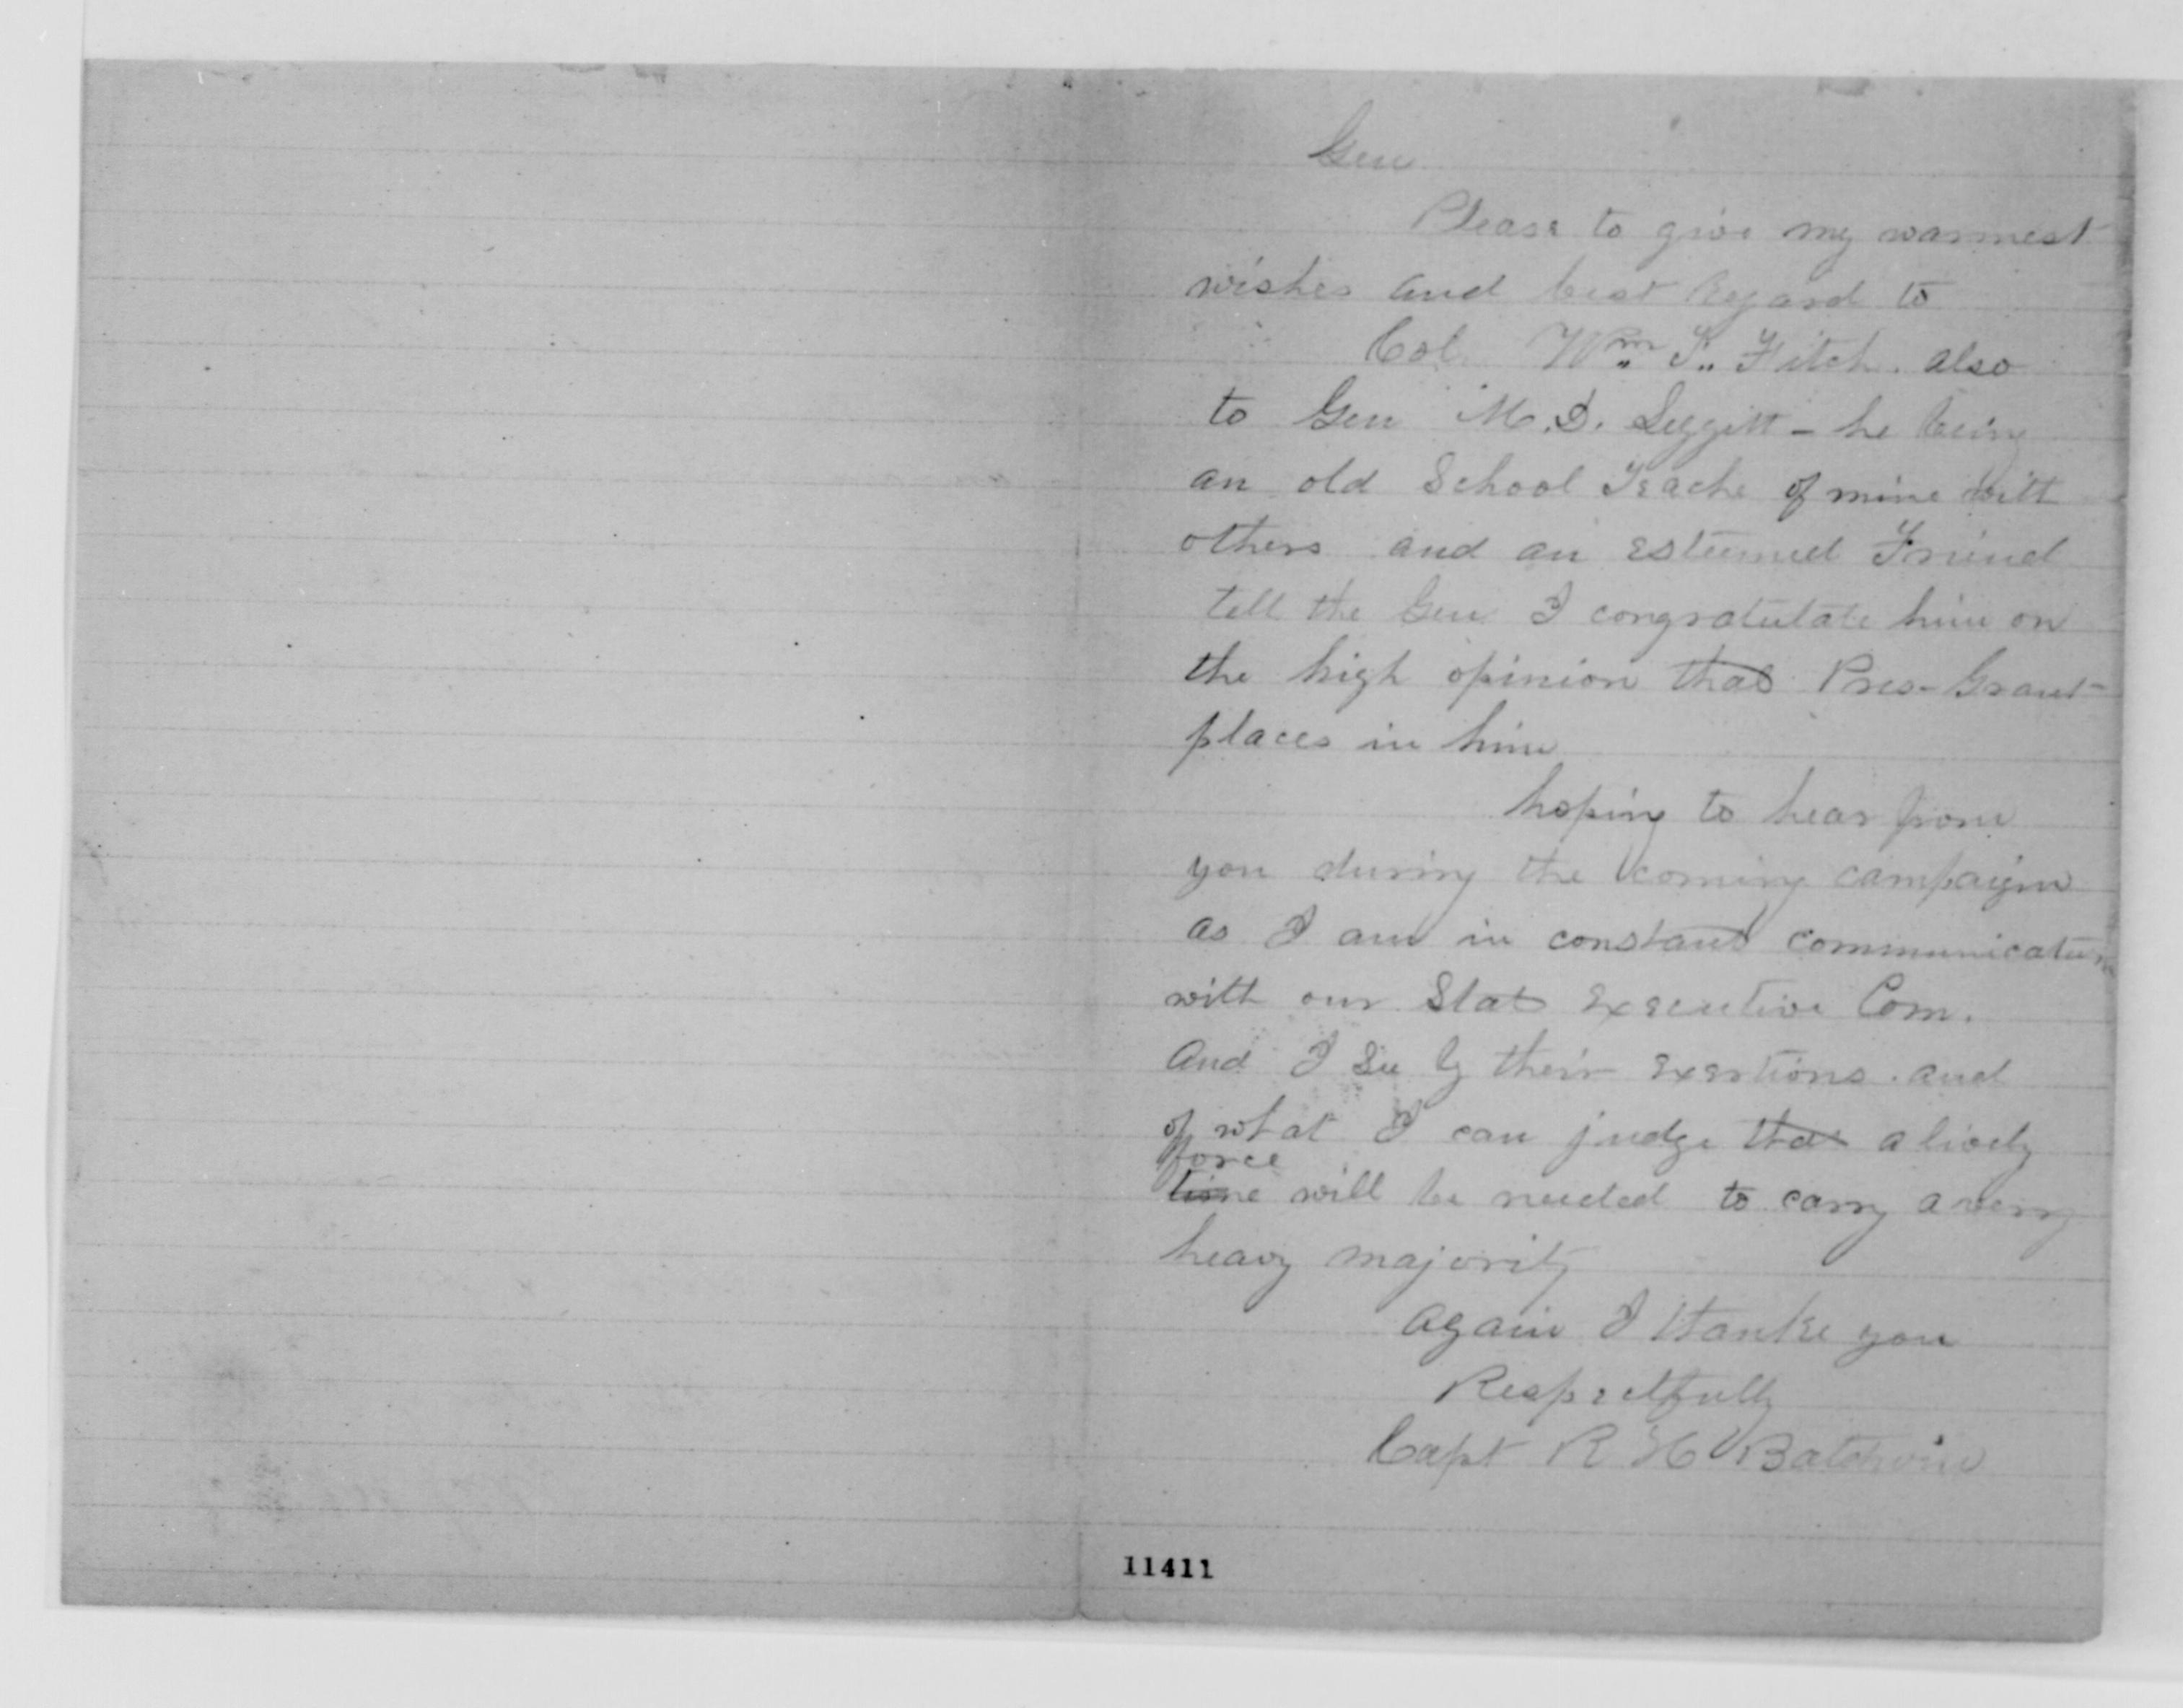 Gen
Please to give my warmest
wishes and best Regard to
Col. Wm S. Fitch. also
to Gen M.D. Leggitt - he being
an old School Teache of mine with
others and an esteemed Friend
tell the Gen I congratulate him on
the high opinion that Pres- Grant
places in him
hoping to hear from
you during the coming campaign
as I am in constant communication
with our State Executive Com.
And I See by their Exertions. and
of what I can judge that a lively
force
time will be needed to carry a very
heavy majority
Again I thanke you
Respectfully
Capt R H
11411